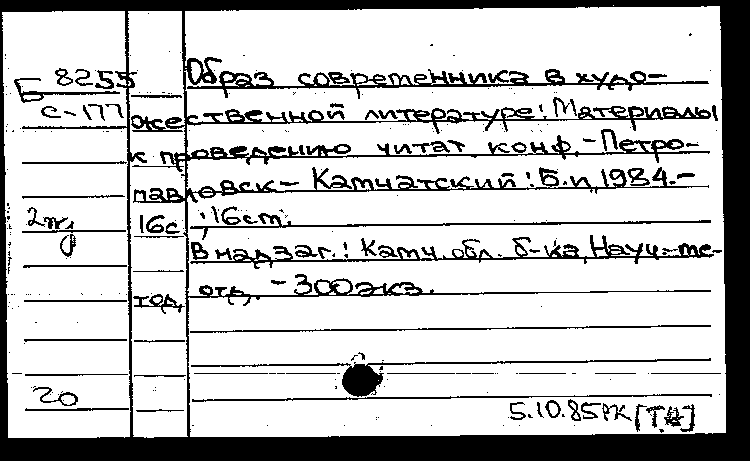 Б 8255
С-177
Образ современника в худо-
жественной литературе: Материалы
к проведению читат. конф. - Петро-
павловск - Камчатский: Б.и, 1984. -
16с ; 16cm.
2
В надзаг.: Камч. обл. б-ка, Науч.-ме-
тод, отд. - 300экз.
20
5.10.85